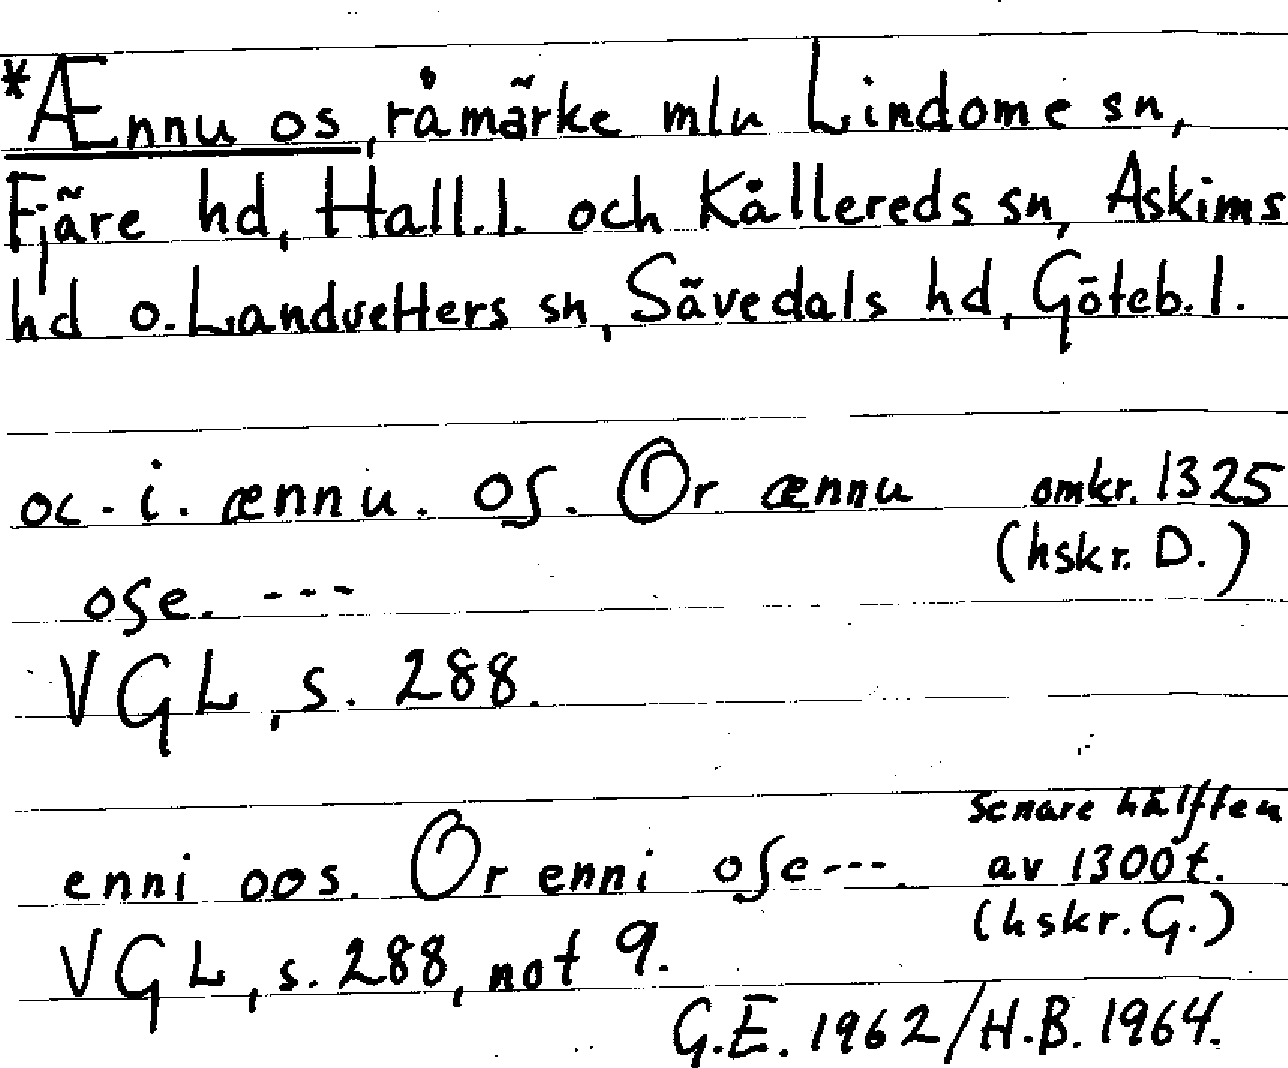 *Ænnu os, råmärke mln Lindome sn,
Fjäre hd, Hall.l. och Kållereds sn, Askims
hd o. Landvetters sn, Sävedals hd, Göteb.l.
oc. i. ænnu. oſ. Or ænnu omkr. 1325
(hskr. D.)
oſe. ---
VGL, s. 288.
Senare hälften
enni oos. Or enni oſe---. av 1300 t.
(hskr. G.)
VGL, s. 288, not 9.
G.E. 1962/H.B. 1964.